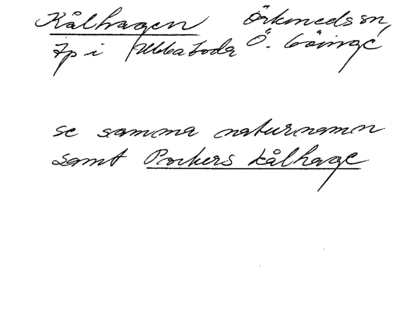 Kålhagen Örkeneds sn,
tp i Ubbaboda Ö. Göinge
se samma naturnamn
samt Pockers kålhage